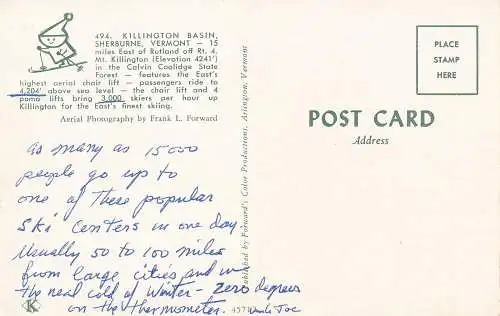 494. KILLINGTON BASIN,
SHERBURNE, VERMONT — 15
miles East of Rutland off Rt. 4.
Mt. Killington (Elevation 4241')
in the Calvin Coolidge State
Forest — features the East's
highest aerial chair lift — passengers ride to
4,204' above sea level — the chair lift and 4
poma lifts bring 3,000 skiers per hour up
Killington for the East's finest skiing.
Aerial Photography by Frank L. Forward
as many as 15000
people go up to
one of these popular
Ski Centers in one day.
Usually 50 to 100 miles
from large cities, and in
the real cold of Winter - zero degrees
on the thermometer.
Uncle Joe
K
Published by Forward's Color Productions, Arlington, Vermont
PLACE
STAMP
HERE
POST CARD
Address